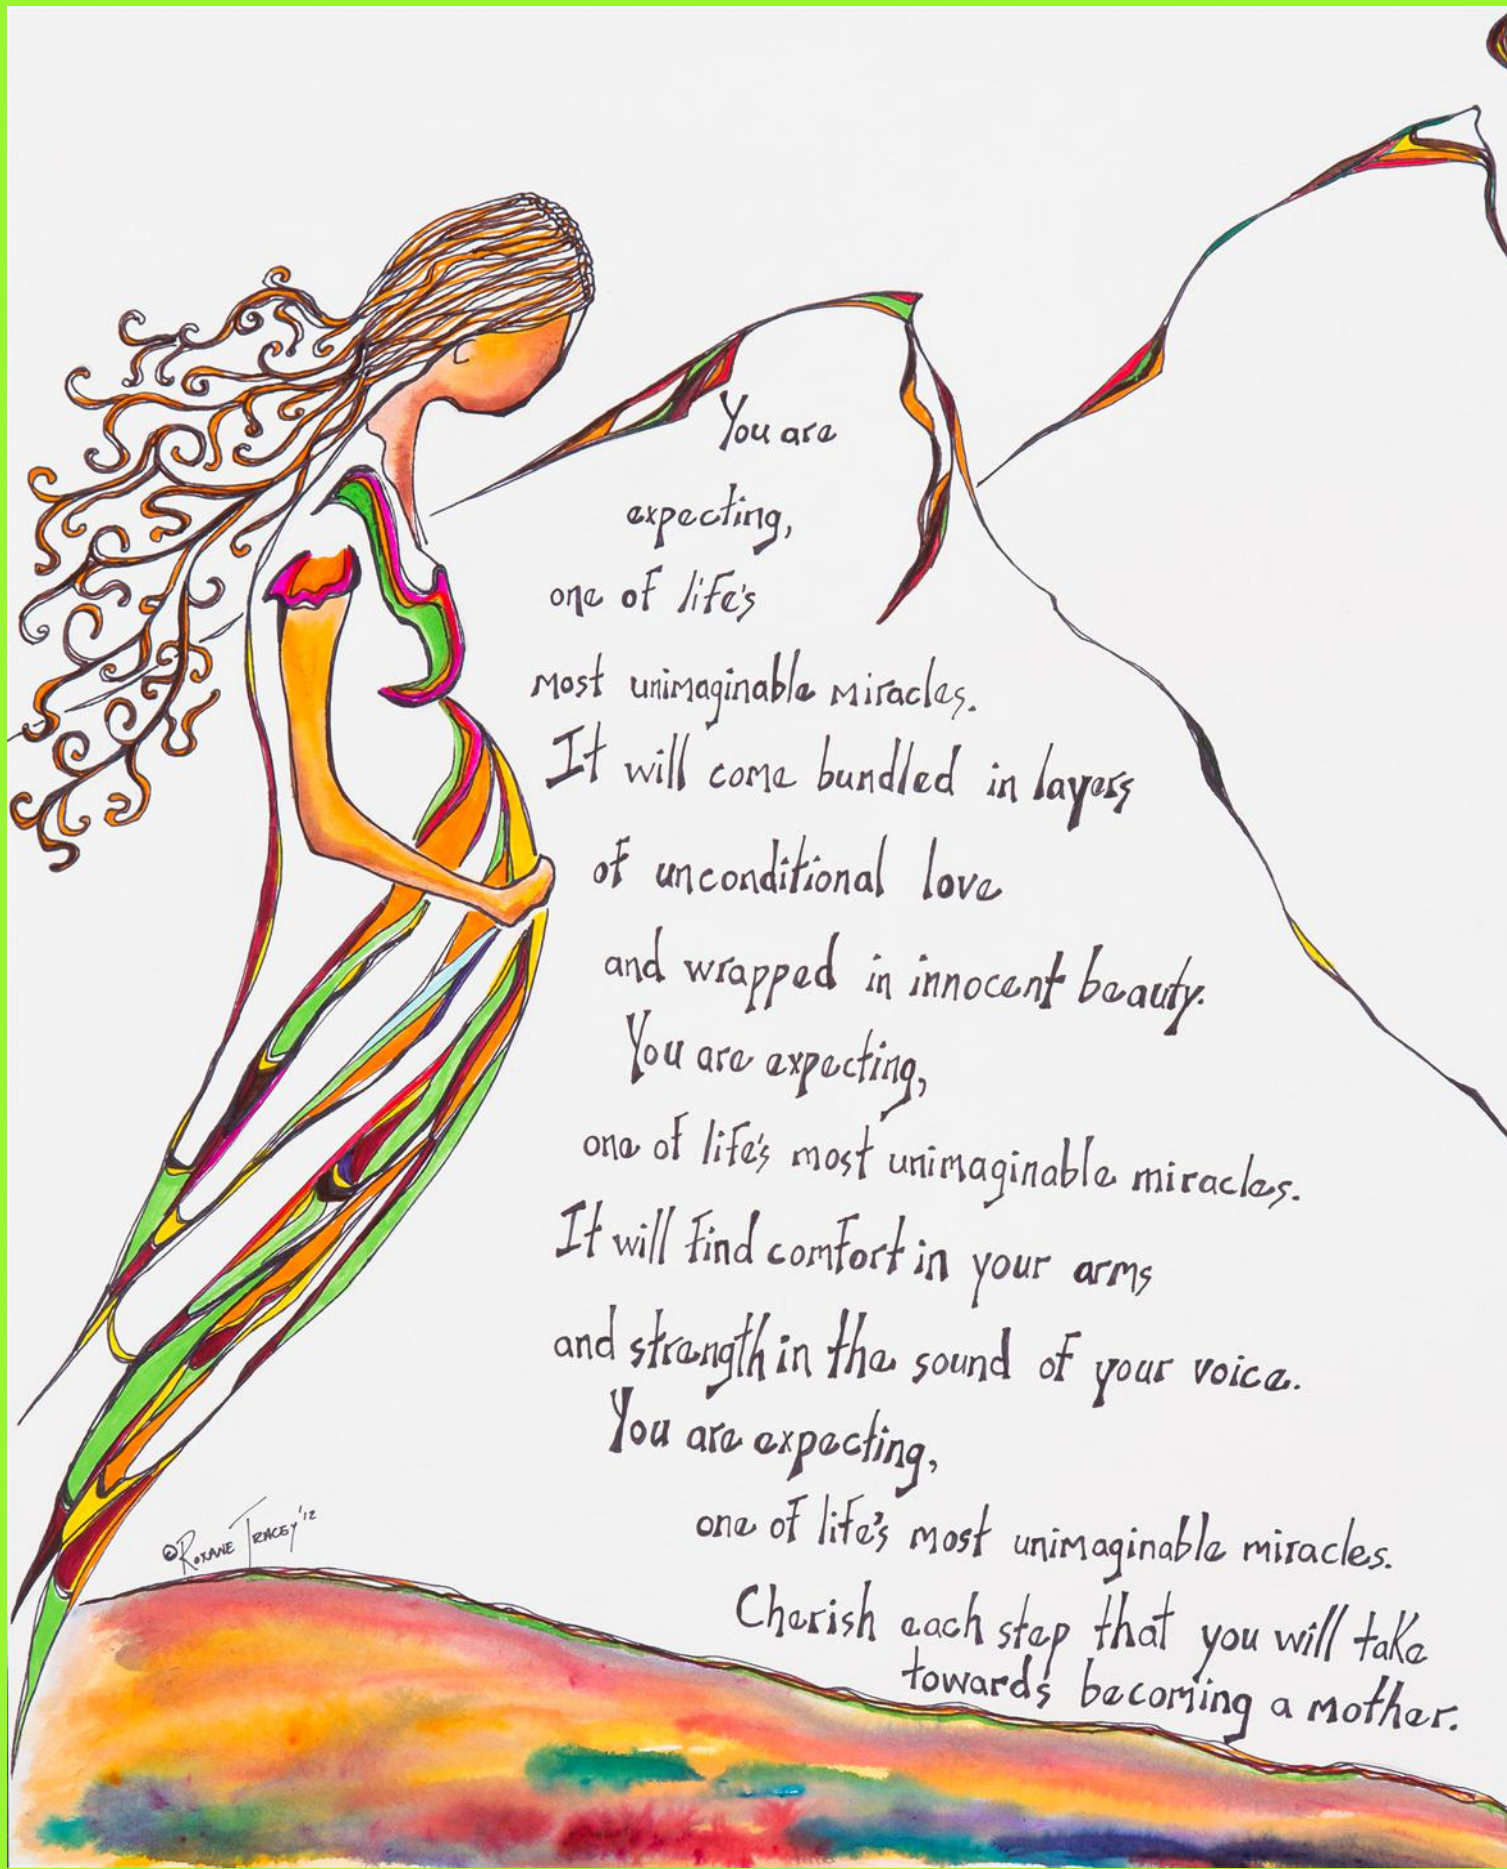 You are
expecting,
one of life's
most unimaginable miracles.
It will come bundled in layers
of unconditional love
and wrapped in innocent beauty.
You are expecting,
one of life's most unimaginable miracles.
It will find comfort in your arms
and strength in the sound of your voice.
You are expecting,
one of life's most unimaginable miracles.
Cherish each step that you will take
towards becoming a mother.
©Roxane Tracey '12